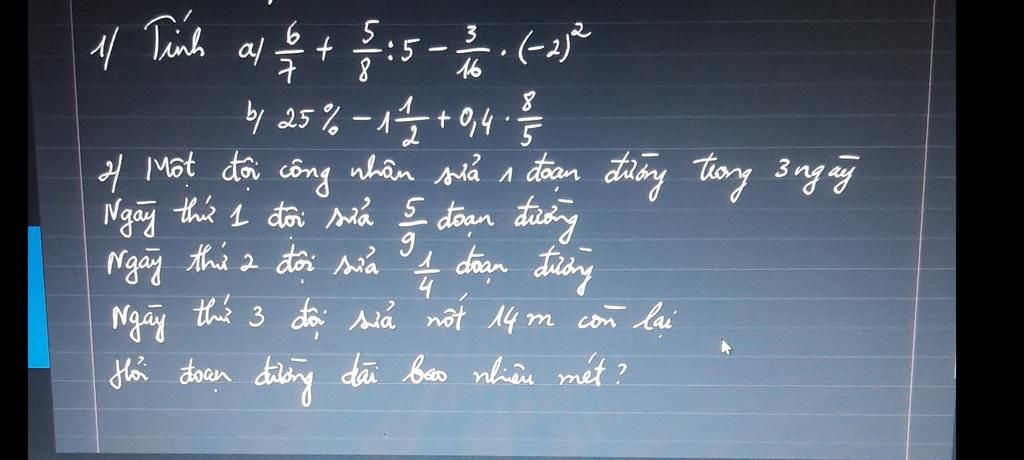 1/ Tính a) 6/7 + 5/8 : 5 − 3/16 . (−2)²
b) 25% − 1 1/2 + 0,4 . 8/5
2/ Một đội công nhân sửa 1 đoạn đường trong 3 ngày
Ngày thứ 1 đội sửa 5/9 đoạn đường
Ngày thứ 2 đội sửa 1/4 đoạn đường
Ngày thứ 3 đội sửa nốt 14 m còn lại
Hỏi đoạn đường dài bao nhiêu mét?